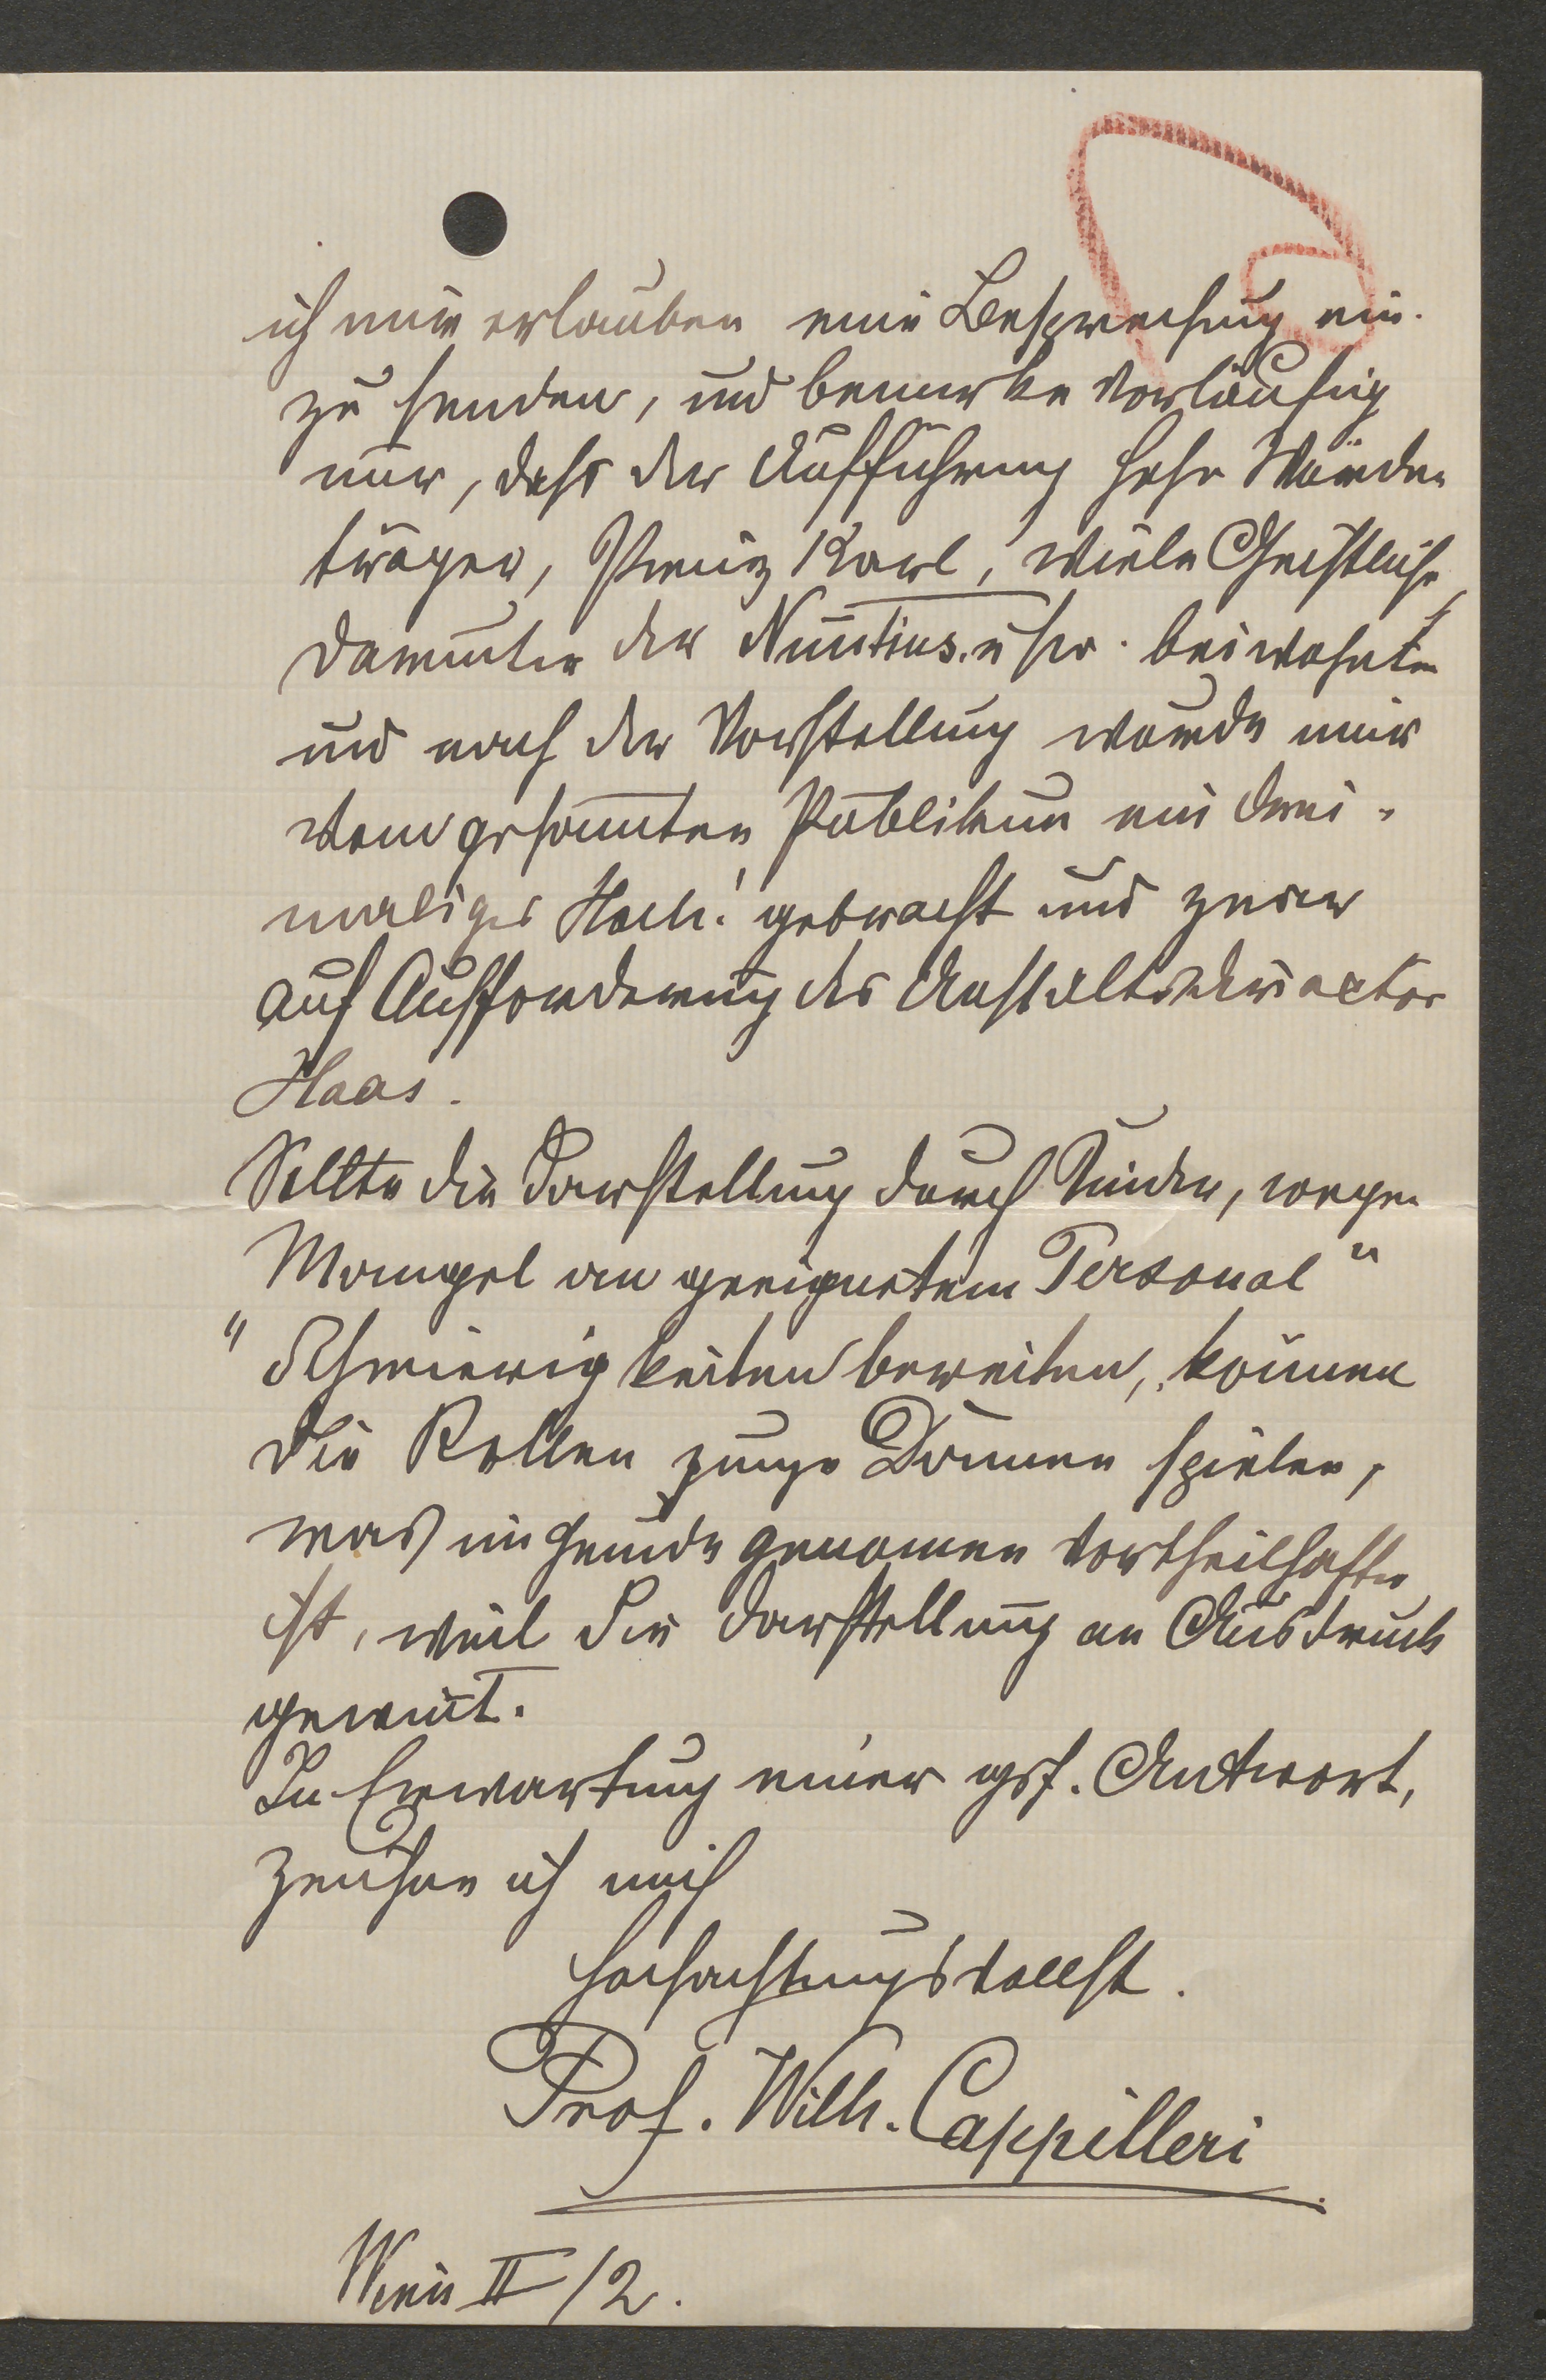 ich mir erlauben eine Besprechung ein-
zu senden, und bemerke vorläufig
nur, dass der Aufführung hohe Würden
träger, Prinz Karl, viele Geistliche,
darunter der Nuntius. usw. beiwohnten
und nach der Vorstellung wurde mir
vom gesam̅ten Publikum ein drei-
maliges Hoch! gebracht und zwar
auf Aufforderung des Anstaltsdirector
Haas.
Sollte die Darstellung durch Kinder, wegen
Mangel an geeignetem Personal"
"Schwierigkeiten bereiten, können
die Rollen junge Damen spielen,
was im Grunde genomen vortheilhafter
ist, weil die Darstellung an Ausdruck
gewin̅t.
In Erwartung einer gef. Antwort,
zeichne ich mich
hochachtungsvollst.
Prof. Wilh. Cappilleri
Wien II/2.